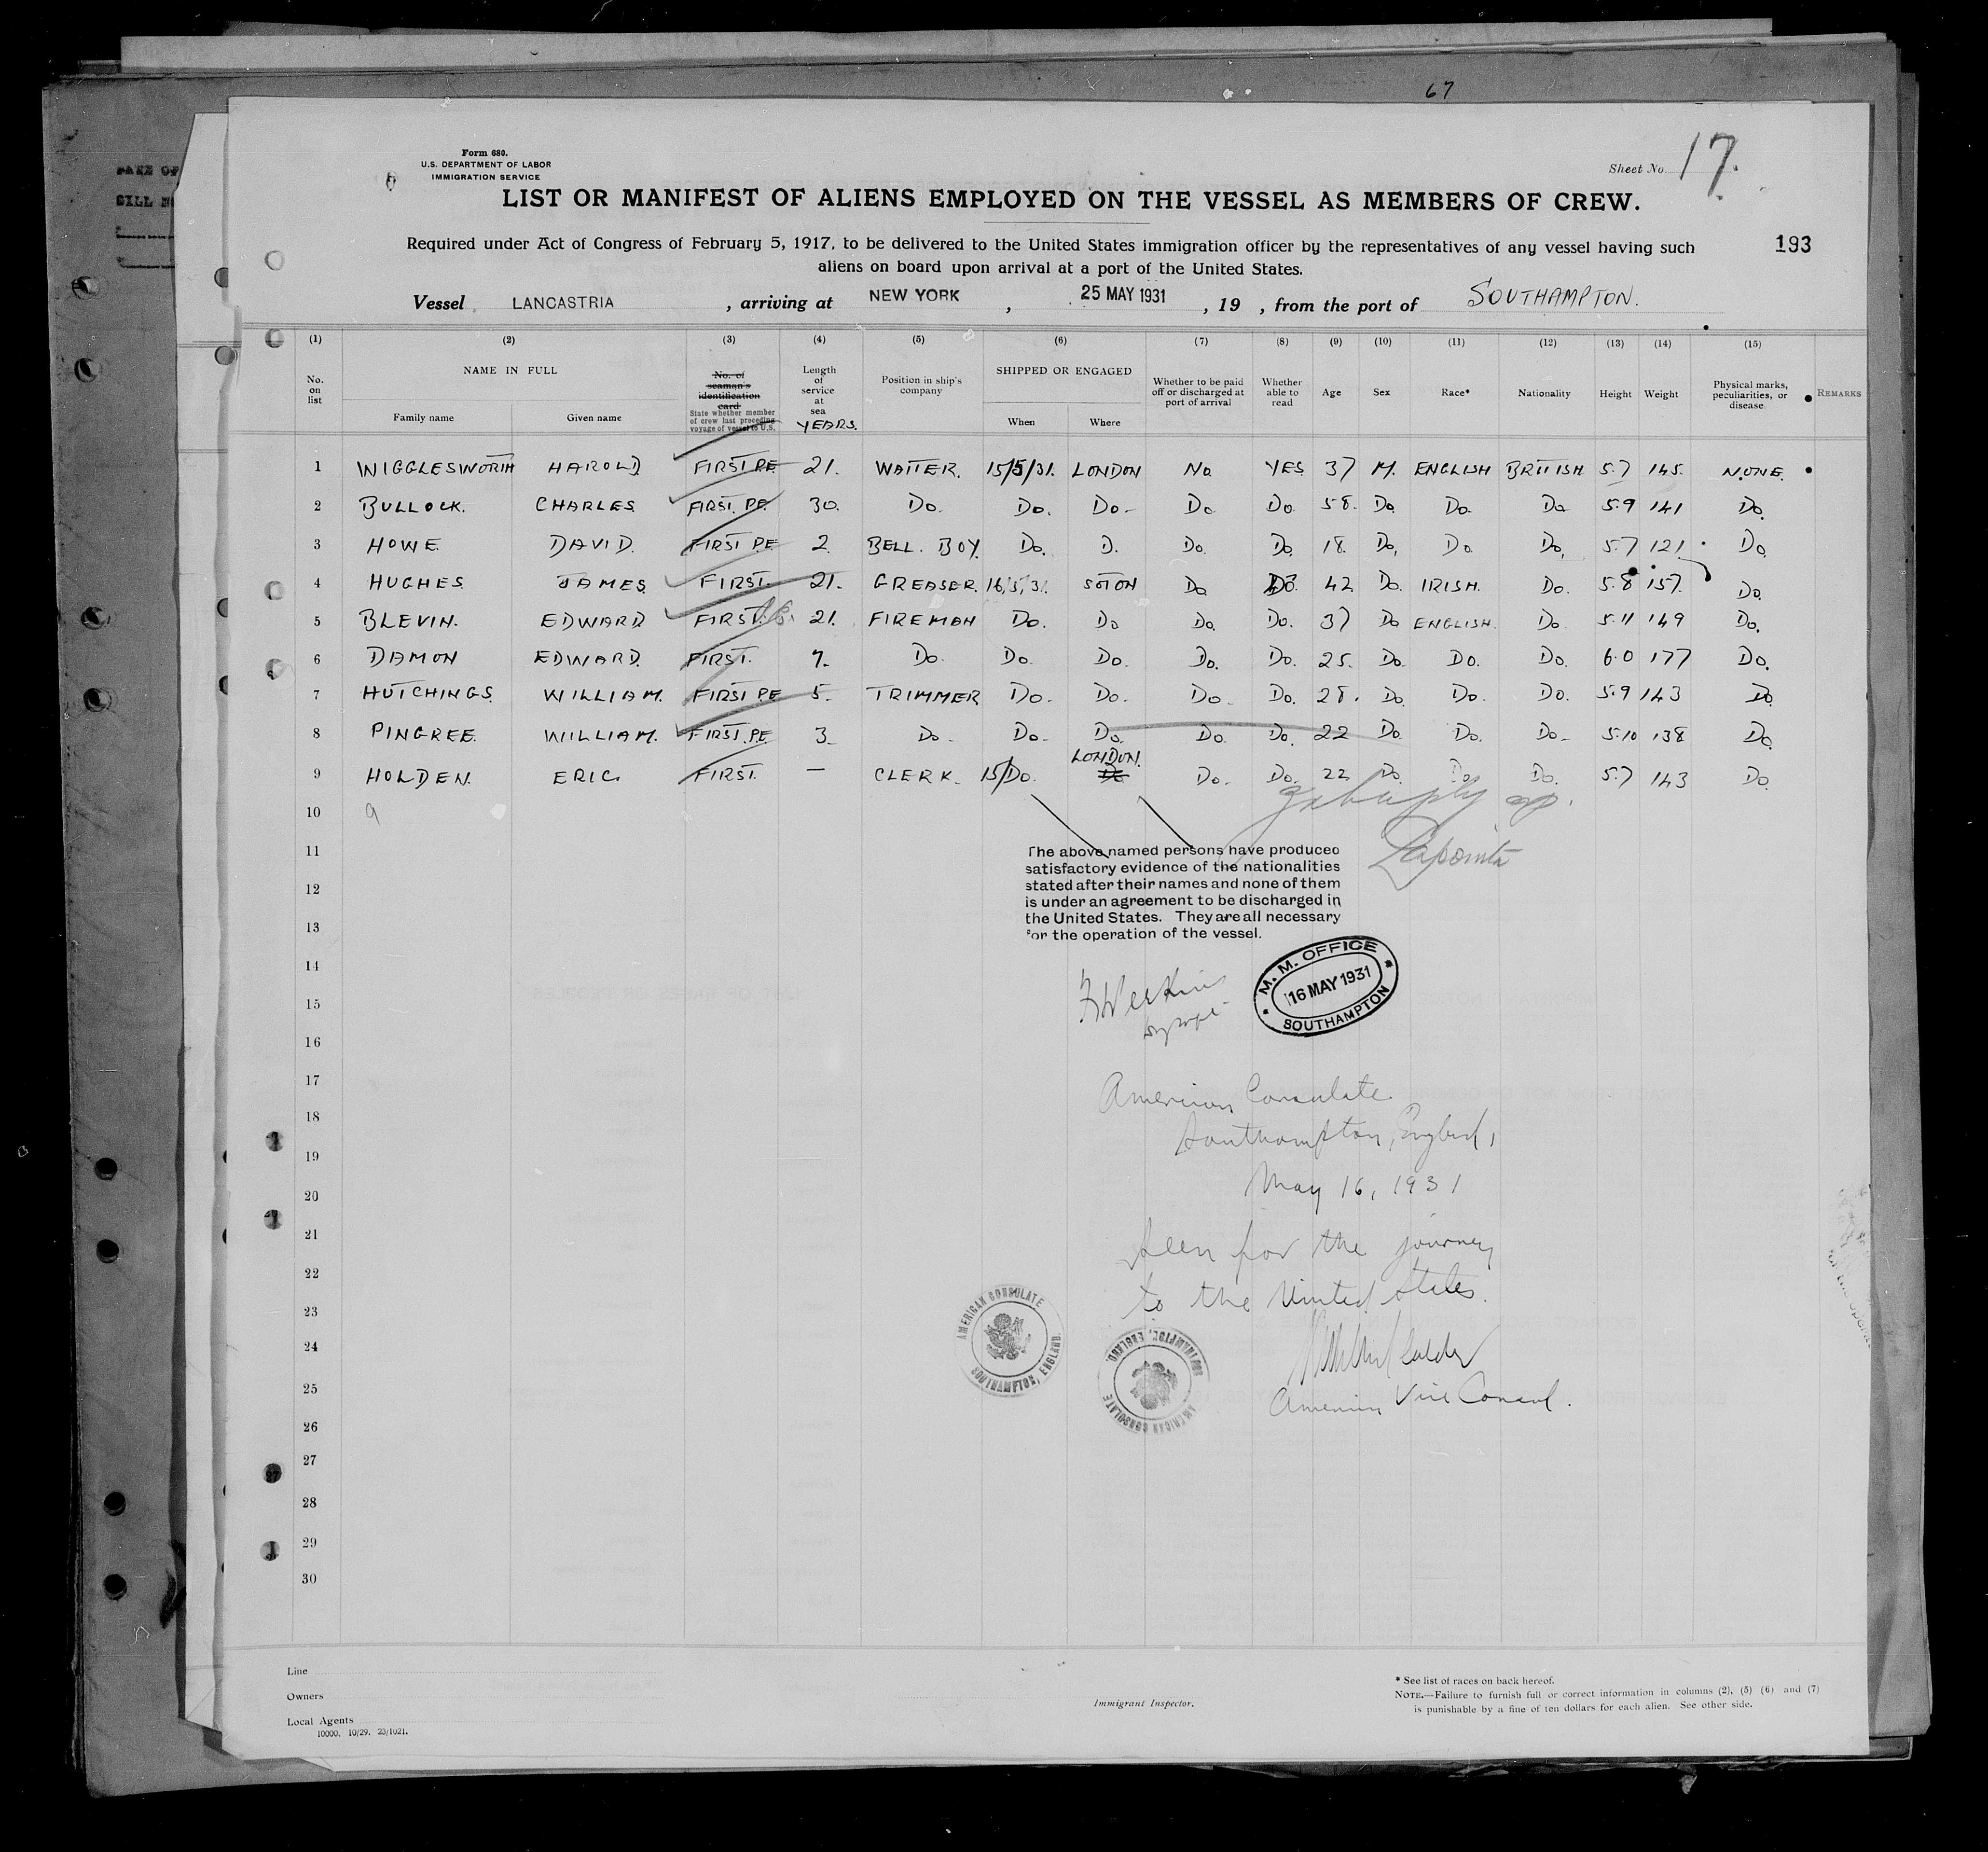 67
Form 680.
U.S. DEPARTMENT OF LABOR
IMMIGRATION SERVICE
Sheet No. 17.
LIST OR MANIFEST OF ALIENS EMPLOYED ON THE VESSEL AS MEMBERS OF CREW.
193
Required under Act of Congress of February 5, 1917, to be delivered to the United States immigration officer by the representatives of any vessel having such
aliens on board upon arrival at a port of the United States.
Vessel LANCASTRIA, arriving at NEW YORK, 25 MAY 1931, 19 , from the port of SOUTHAMPTON.
(1) (2) (3) (4) (5) (6) (7) (8) (9) (10) (11) (12) (13) (14) (15)
No. on list NAME IN FULL Family name Given name No. of seaman's identification card State whether member of crew last preceding voyage of vessel to U.S. Length of service at sea YEARS. Position in ship's company SHIPPED OR ENGAGED When Where Whether to be paid off or discharged at port of arrival Whether able to read Age Sex Race* Nationality Height Weight Physical marks, peculiarities, or disease REMARKS
1 WIGGLESWORTH HAROLD FIRST PE 21. WAITER. 15/5/31. LONDON No YES 37 M. ENGLISH BRITISH 5.7 145. NONE.
2 BULLOCK. CHARLES FIRST. PE. 30. Do. Do. Do- Do Do. 58. Do. Do. Do 5.9 141 Do.
3 HOWE. DAVID. FIRST PE 2. BELL. BOY. Do. D. Do. Do. 18. Do, Do. Do, 5.7 121. Do.
4 HUGHES. JAMES. FIRST. 21. GREASER. 16/5/31. SOTON Do Do. 42 Do. IRISH. Do. 5.8 157. Do.
5 BLEVIN. EDWARD FIRST. 21. FIREMAN Do. Do Do. Do. 37 Do ENGLISH. Do. 5.11 149 Do.
6 DAMON EDWARD. FIRST. 7. Do. Do. Do. Do. Do. 25. Do. Do. Do. 6.0 177 Do.
7 HUTCHINGS. WILLIAM. FIRST PE 5. TRIMMER Do. Do. Do. Do. 28. Do. Do. Do. 5.9 143 Do.
8 PINGREE. WILLIAM. FIRST. PE. 3. Do. Do. Do. Do. Do. 22 Do. Do. Do. 5.10 138 Do.
9 HOLDEN. ERIC. FIRST. — CLERK. 15/Do. LONDON. Do. Do. 22 Do. Do. Do. 5.7 143 Do.
10 9
11
12
13
14
15
16
17
18
19
20
21
22
23
24
25
26
27
28
29
30
Lapointe
The above named persons have produced
satisfactory evidence of the nationalities
stated after their names and none of them
is under an agreement to be discharged in
the United States. They are all necessary
for the operation of the vessel.
M. M. OFFICE
16 MAY 1931
SOUTHAMPTON
American Consulate
Southampton, England,
May 16, 1931
Seen for the journey
to the United States.
American Vice Consul.
AMERICAN CONSULATE
SOUTHAMPTON, ENGLAND.
AMERICAN CONSULATE
SOUTHAMPTON, ENGLAND.
Line
Owners
Local Agents
10000. 10/29. 23/1021.
Immigrant Inspector.
* See list of races on back hereof.
NOTE.—Failure to furnish full or correct information in columns (2), (5) (6) and (7)
is punishable by a fine of ten dollars for each alien. See other side.